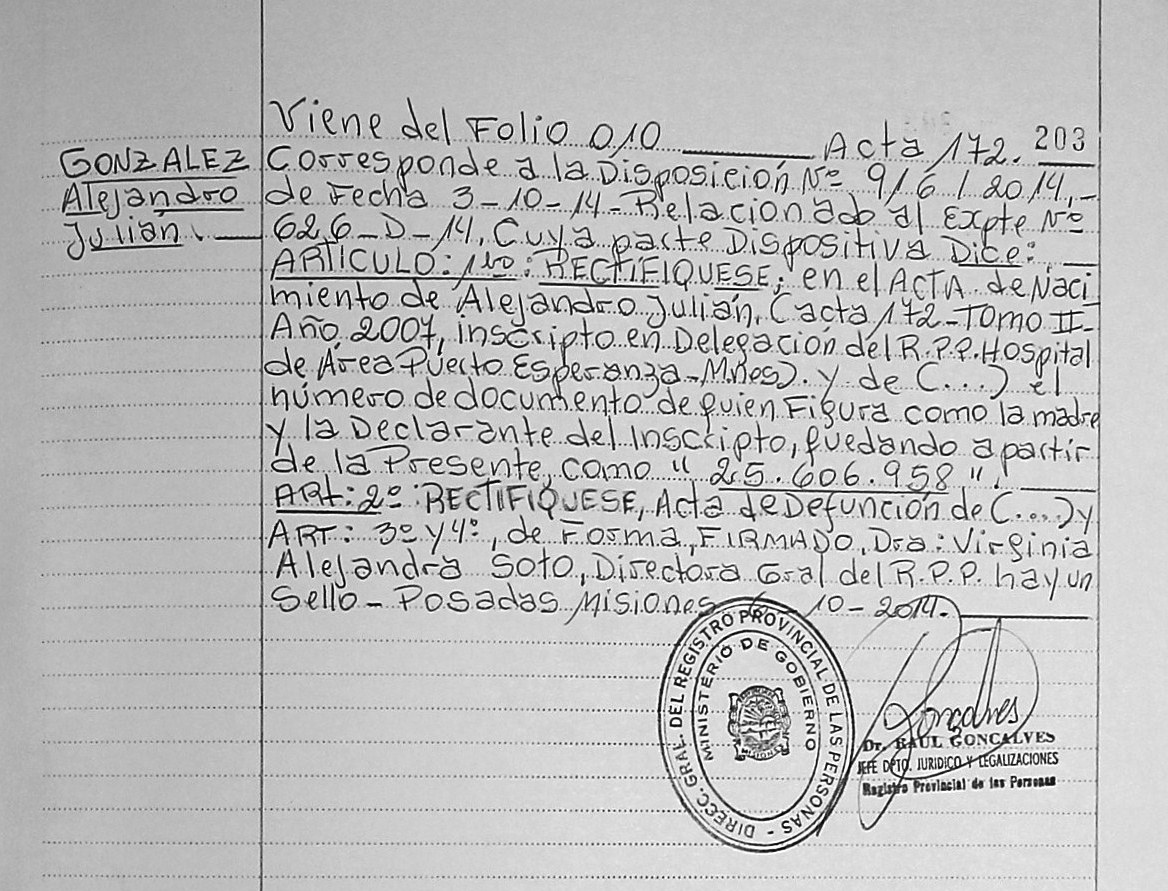 Viene del Folio 010 Acta 172. 203
GONZALEZ Corresponde a la Disposición Nº 916/2014.-
Alejandro de Fecha 3-10-14- Relacionado al Expte Nº
Julián. 626-D-14, Cuya parte Dispositiva Dice:
ARTICULO: 1ro: RECTIFIQUESE; en el ACTA de Naci
miento de Alejandro Julián, (acta 172-Tomo II-
Año 2007, inscripto en Delegación del R.P.P. Hospital
de Área Puerto Esperanza-Mnes). y de (...) el
número de documento de quien Figura como la madre
y la Declarante del Inscripto, quedando a partir
de la Presente, como "25.606.958".
ART: 2º: RECTIFIQUESE, Acta de Defunción de (...) y
ART: 3º y 4º, de Forma, FIRMADO, Dra: Virginia
Alejandra Soto, Directora Gral del R.P.P. hay un
Sello - Posadas Misiones 10-2014.
DIRECC. GRAL. DEL REGISTRO PROVINCIAL DE LAS PERSONAS -
MINISTERIO DE GOBIERNO
Gonçalves
Dr. RAUL GONCALVES
JEFE DPTO. JURIDICO Y LEGALIZACIONES
Registro Provincial de las Personas